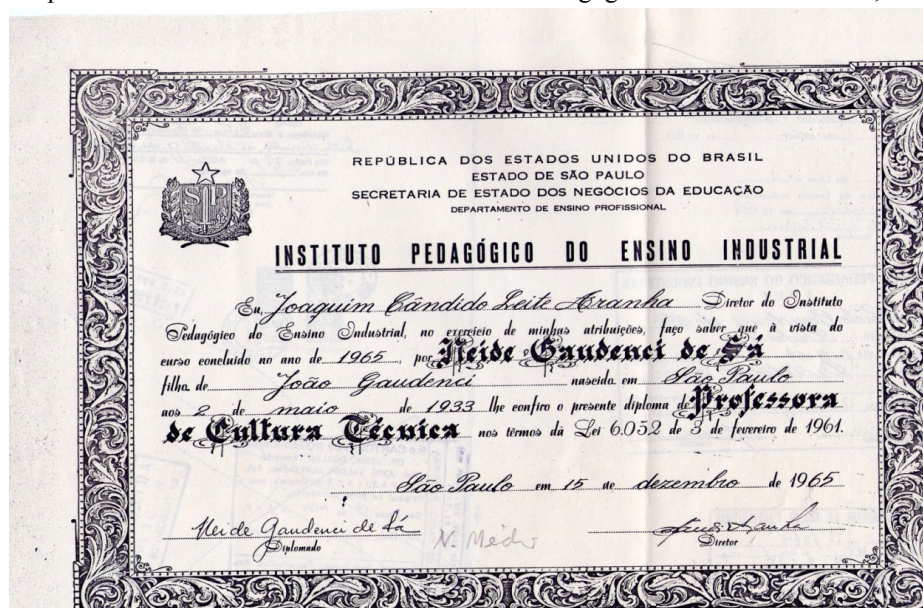 SP
REPÚBLICA DOS ESTADOS UNIDOS DO BRASIL
ESTADO DE SÃO PAULO
SECRETARIA DE ESTADO DOS NEGÓCIOS DA EDUCAÇÃO
DEPARTAMENTO DE ENSINO PROFISSIONAL
INSTITUTO PEDAGÓGICO DO ENSINO INDUSTRIAL
Eu, Joaquim Cândido Leite Aranha Diretor do Instituto
Pedagógico do Ensino Industrial, no exercício de minhas atribuições, faço saber que à vista do
curso concluido no ano de 1965, por Neide Gaudenci de Sá
filha de João Gaudenci nascida em São Paulo
aos 2 de maio de 1933 lhe confiro o presente diploma de Professora
de Cultura Técnica nos têrmos da Lei 6.052 de 3 de fevereiro de 1961.
São Paulo em 15 de dezembro de 1965
Neide Gaudenci de Sá
Diplomado
N. Médio
Diretor